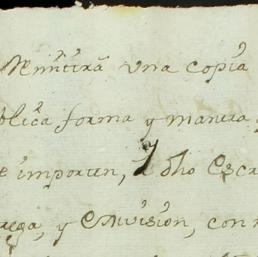 Remitirá una copia
blica forma y manera
e importen, a dho Escri
rega, y emision, con